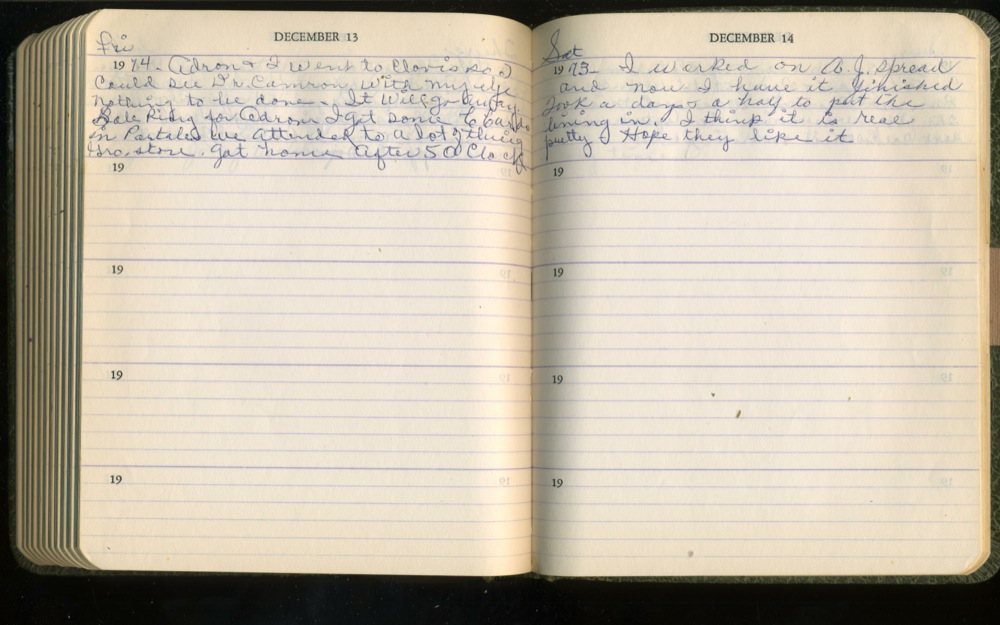 DECEMBER 13
Fri
1974. Adron & I went to Clovis so I
Could see Dr. Camron with my eye
nothing to be done. It will go away.
Bale Ring for Adron I got some
in Portales we attended to a lot of thing
Gro. store. Got home After 5 O Clock
19
19
19
19
DECEMBER 14
Sat
1973 I worked on B.J. Spread
and now I have it finished
Took a day & a half to put the
lining in. I think it is real
pretty Hope they like it
19
19
19
19